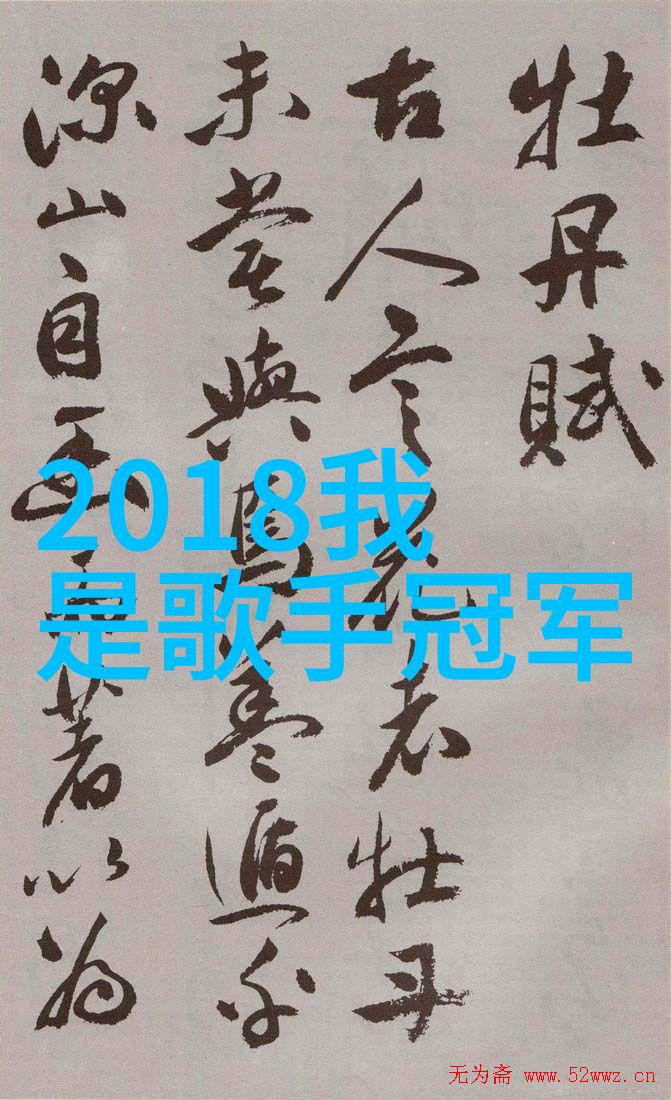 牡丹賦
古人言花者牡丹
未嘗與焉蓋遁
深山自幽而著以為
2018我
是歌手冠军
无为斋 www.52wwz.cn